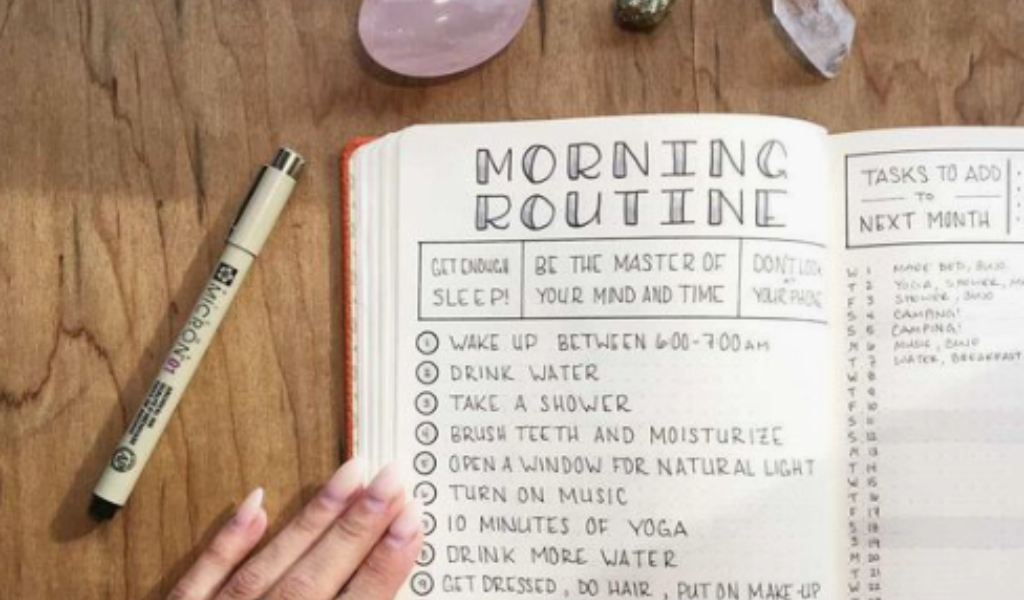 MORNING
ROUTINE
GET ENOUGH
SLEEP!
BE THE MASTER OF
YOUR MIND AND TIME
DON'T LOOK
AT
YOUR PHONE
1 WAKE UP BETWEEN 6:00-7:00 AM
2 DRINK WATER
3 TAKE A SHOWER
4 BRUSH TEETH AND MOISTURIZE
5 OPEN A WINDOW FOR NATURAL LIGHT
6 TURN ON MUSIC
10 MINUTES OF YOGA
8 DRINK MORE WATER
9 GET DRESSED, DO HAIR, PUT ON MAKE-UP
TASKS TO ADD
TO
NEXT MONTH
W 1 MAKE BED, BUJO
T 2 YOGA, SHOWER,
F 3 SHOWER, BUJO
S 4 CAMPING!
S 5 CAMPING!
M 6 MUSIC, BUJO
T 7 WATER, BREAKFAST
W 8
T 9
F 10
S 11
S 12
M 13
T 14
W 15
T 16
F 17
S 18
S 19
M 20
T 21
W 22
MICRON 01